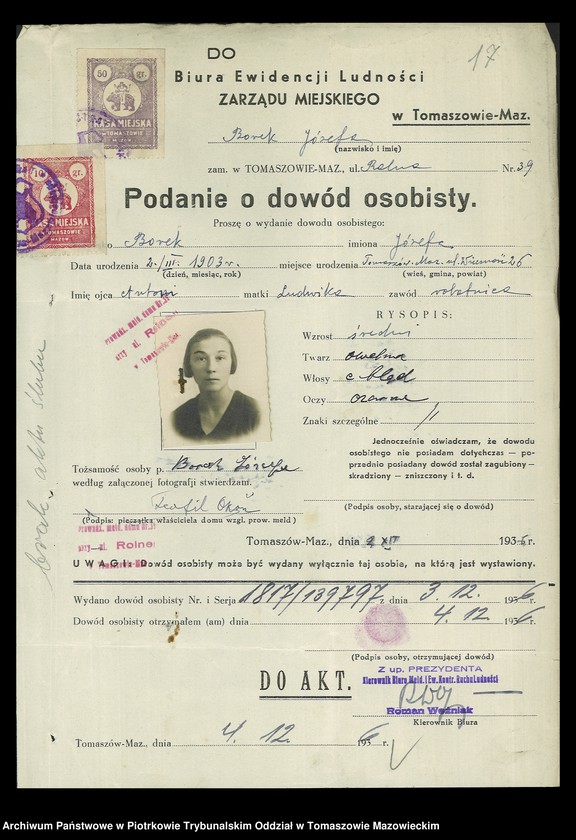 17
DO
Biura Ewidencji Ludności
ZARZĄDU MIEJSKIEGO
w Tomaszowie-Maz.
50 gr.
KASA MIEJSKA
W TOMASZOWIE
MAZOW.
Borek Józefa
(nazwisko i imię)
zam. w TOMASZOWIE-MAZ., ul. Rolna Nr. 39
10 gr.
KASA MIEJSKA
W TOMASZOWIE
MAZOW.
Podanie o dowód osobisty.
Proszę o wydanie dowodu osobistego:
o Borek imiona Józefa
Data urodzenia 2/III. 1903 r. miejsce urodzenia Tomaszów-Maz. ul.
(dzień, miesiąc, rok) (wieś, gmina, powiat)
Imię ojca Antoni matki Ludwika zawód robotnica
RYSOPIS:
Wzrost średni
Twarz owalna
Włosy c. bląd
Oczy czarne
Znaki szczególne //
brak aktu ślubu
Jednocześnie oświadczam, że dowodu
osobistego nie posiadam dotychczas — po-
przednio posiadany dowód został zagubiony -
skradziony - zniszczony i t. d.
Tożsamość osoby p. Borek Józefa
według załączonej fotografii stwierdzam:
Teofil Okoń
(Podpis: pieczątka właściciela domu wzgl. prow. meld)
(Podpis osoby, starającej się o dowód)
Tomaszów-Maz., dnia 2 XII 1936 r.
UWAGI: Dowód osobisty może być wydany wyłącznie tej osobie, na którą jest wystawiony.
Wydano dowód osobisty Nr. i Serja 1817/139797 z dnia 3. 12. 1936 r.
Dowód osobisty otrzymałem (am) dnia 4. 12. 1936 r.
(Podpis osoby, otrzymującej dowód)
DO AKT.
Z up. PREZYDENTA
Kierownik Biura Meld. i Ew. Kontr. Ruchu Ludności
Roman Woźniak
Kierownik Biura
Tomaszów-Maz., dnia 4. 12. 1936 r.
Archiwum Państwowe w Piotrkowie Trybunalskim Oddział w Tomaszowie Mazowieckim